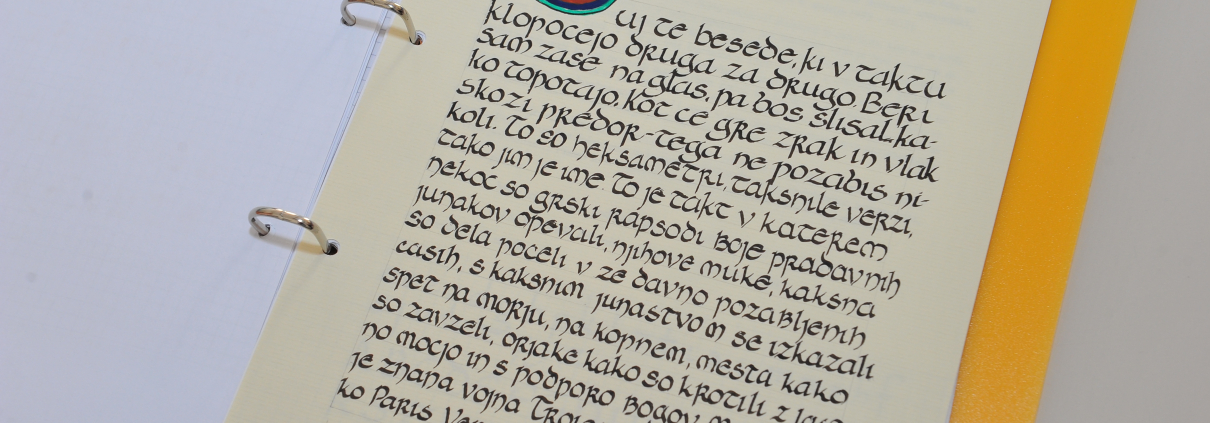 uj te besede, ki v taktu
klopocejo druga za drugo. Beri
sam zase na glas, pa bos slisal, ka-
ko topotajo, kot ce gre zrak in vlak
skozi predor-tega ne pozabis ni-
koli. To so heksametri, taksnile verzi,
tako jim je ime. To je takt v katerem
nekoc so grski rapsodi boje pradavnih
junakov opevali, njihove muke, kaksna
so dela poceli v ze davno pozabljenih
casih, s kaksnim junastvom se izkazali
spet na morju, na kopnem, mesta kako
so zavzeli, orjake kako so krotili z
no mocjo in s podporo bogov
je znana vojna
ko Paris